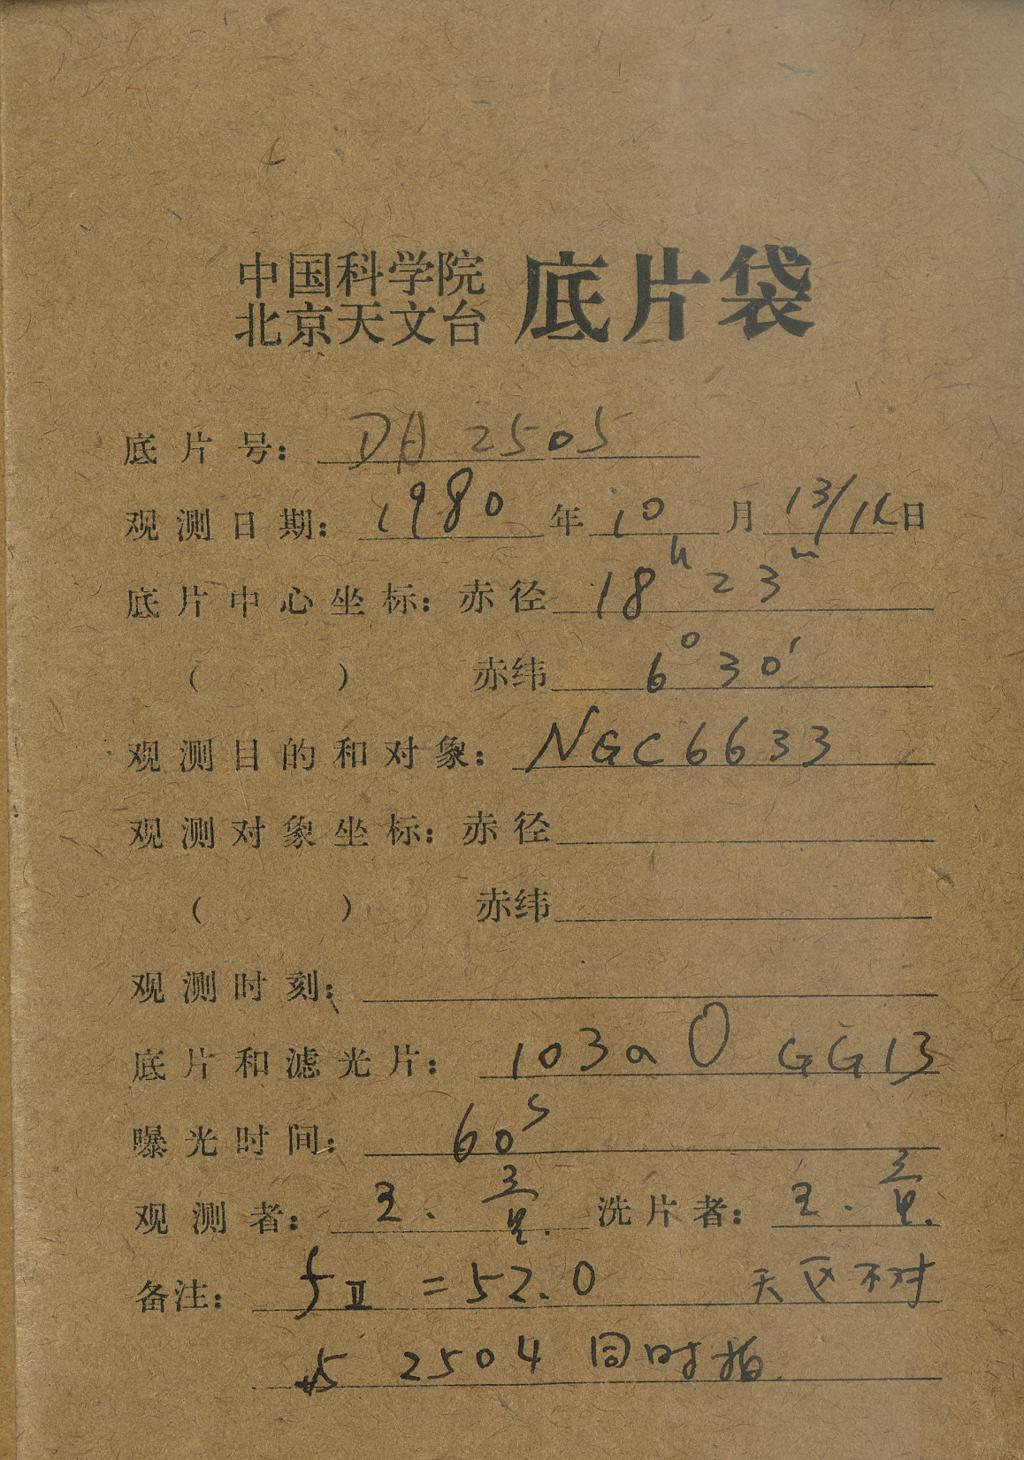 中国科学院
北京天文台 底片袋
底片号: DA 2505
观测日期: 1980 年 10 月 13/14 日
底片中心坐标: 赤径 18h 23m
( ) 赤纬 6° 30′
观测目的和对象: NGC 6633
观测对象坐标: 赤径
( ) 赤纬
观测时刻:
底片和滤光片: 103a O GG13
曝光时间: 60s
观测者: 王. 洗片者: 王.
备注: f II = 52.0 天区不对
与 2504 同时拍